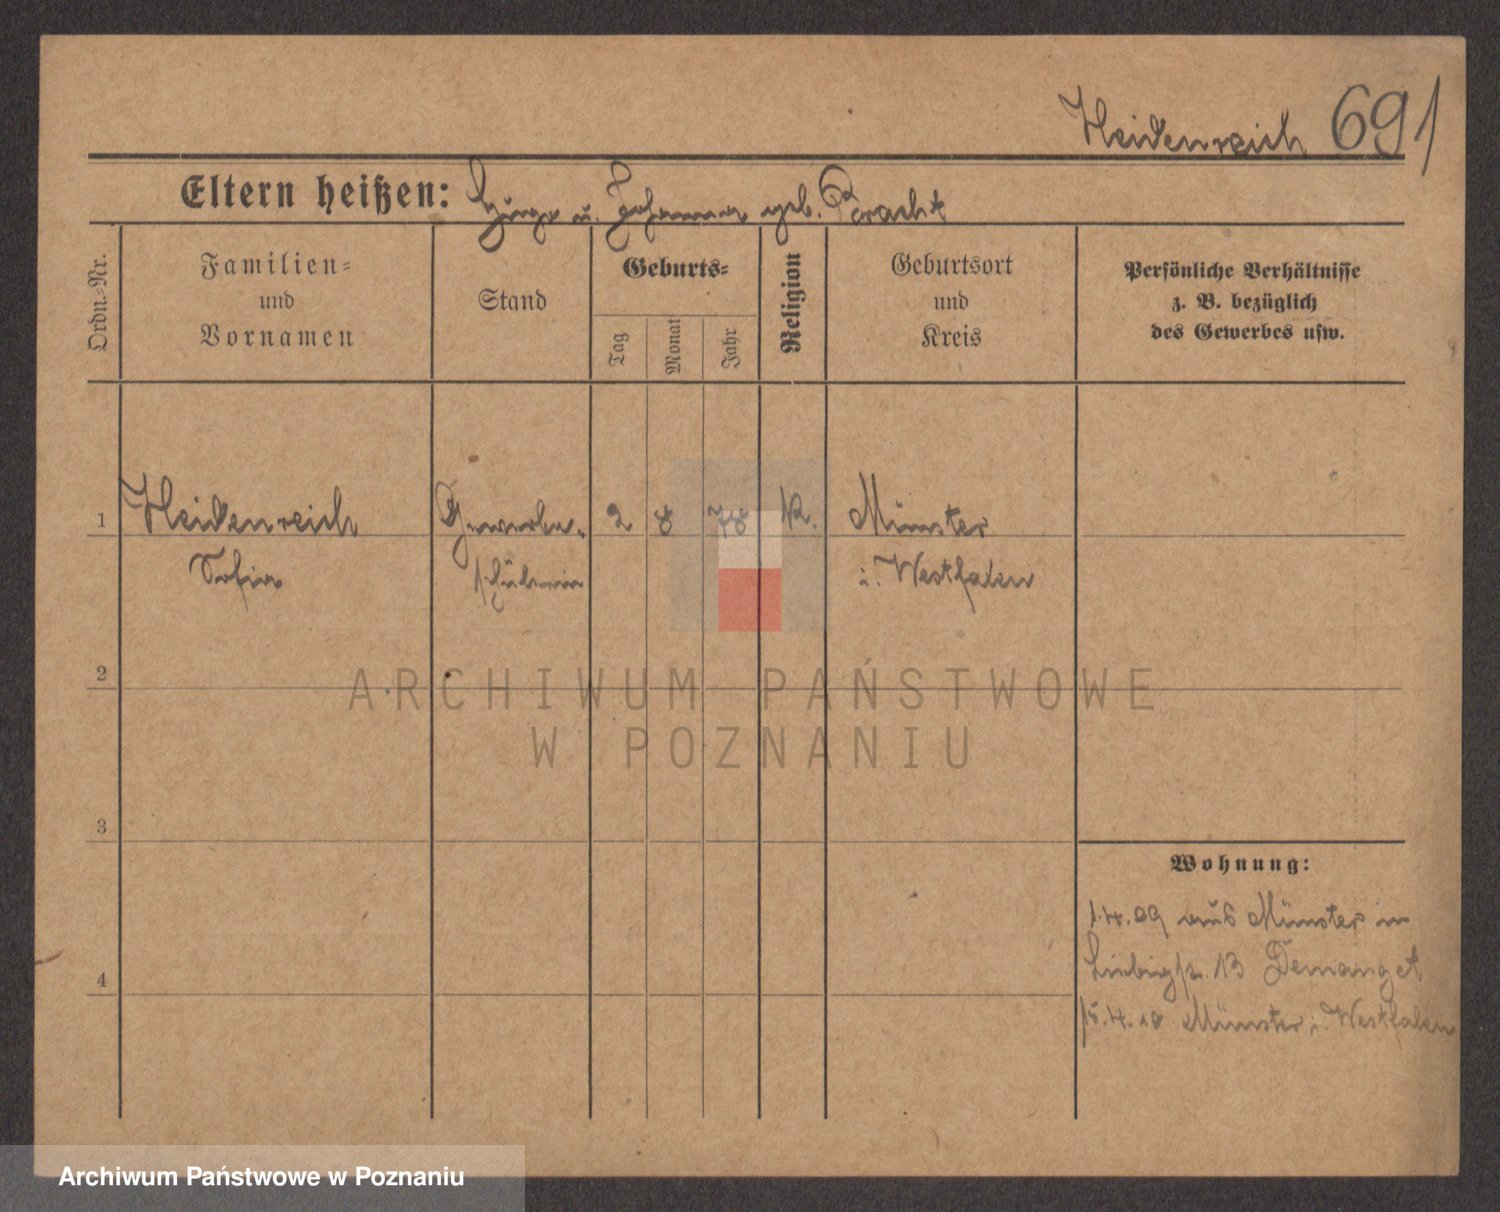 Heidenreich 691
Eltern heißen: Hugo u. Johanna geb. Bracht
Ordn.-Nr.
Familien-
und
Vornamen
Stand
Geburts-
Tag
Monat
Jahr
Religion
Geburtsort
und
Kreis
Persönliche Verhältnisse
z. B. bezüglich
des Gewerbes usw.
1 Heidenreich Gewerbe- 2 8 78 K. Münster
Sofia schülerin i. Westfalen
2
ARCHIWUM PAŃSTWOWE
W POZNANIU
3
Wohnung:
1.4.09 aus Münster in
13 Demanget
4
15.4.10 Münster i. Westfalen
Archiwum Państwowe w Poznaniu